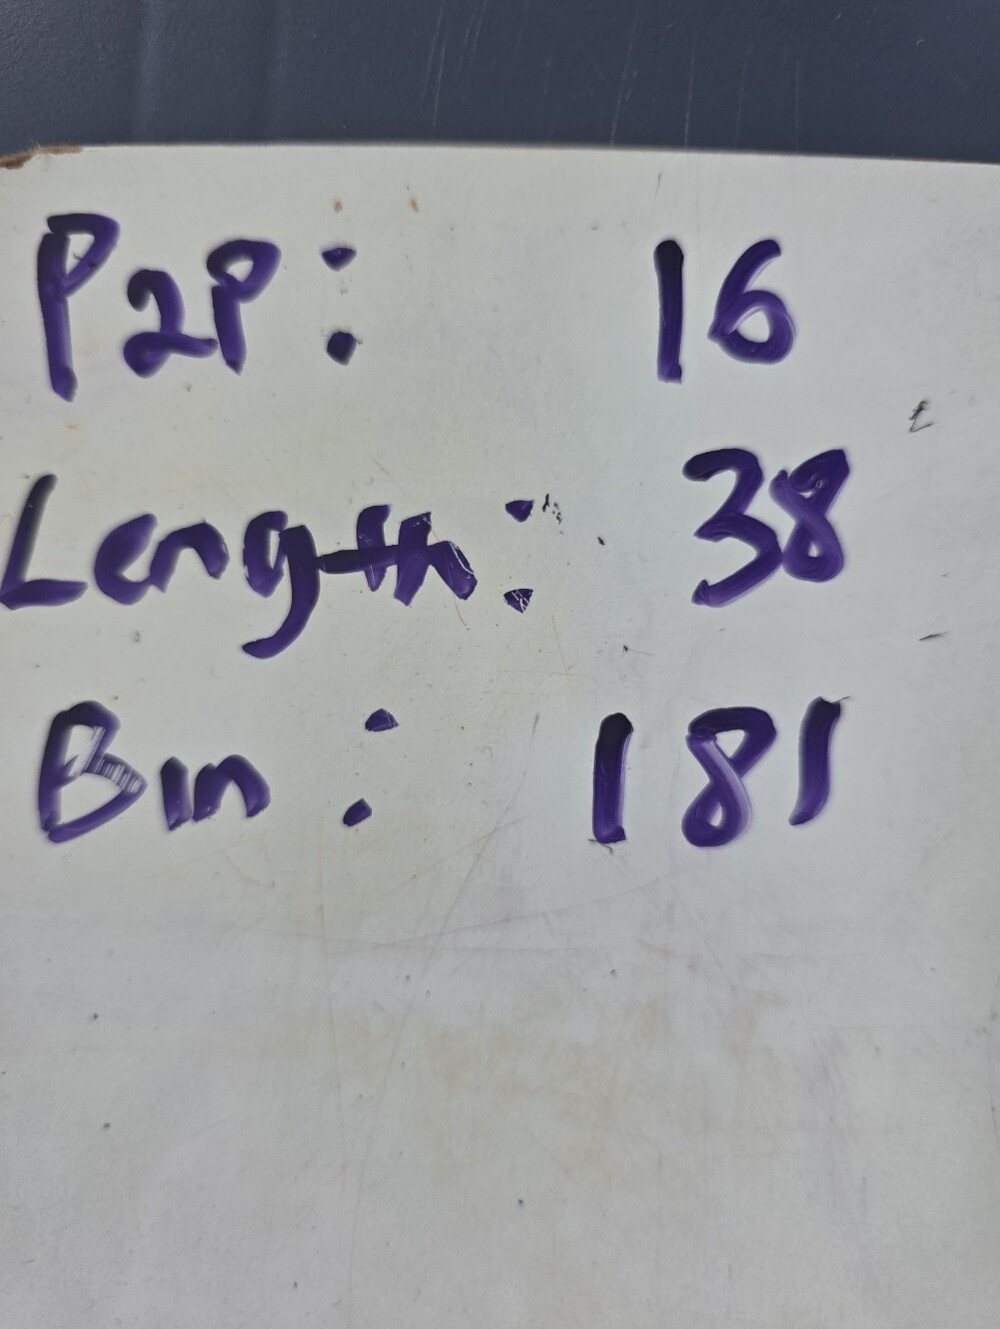 P2P: 16
Length: 38
Bin: 181